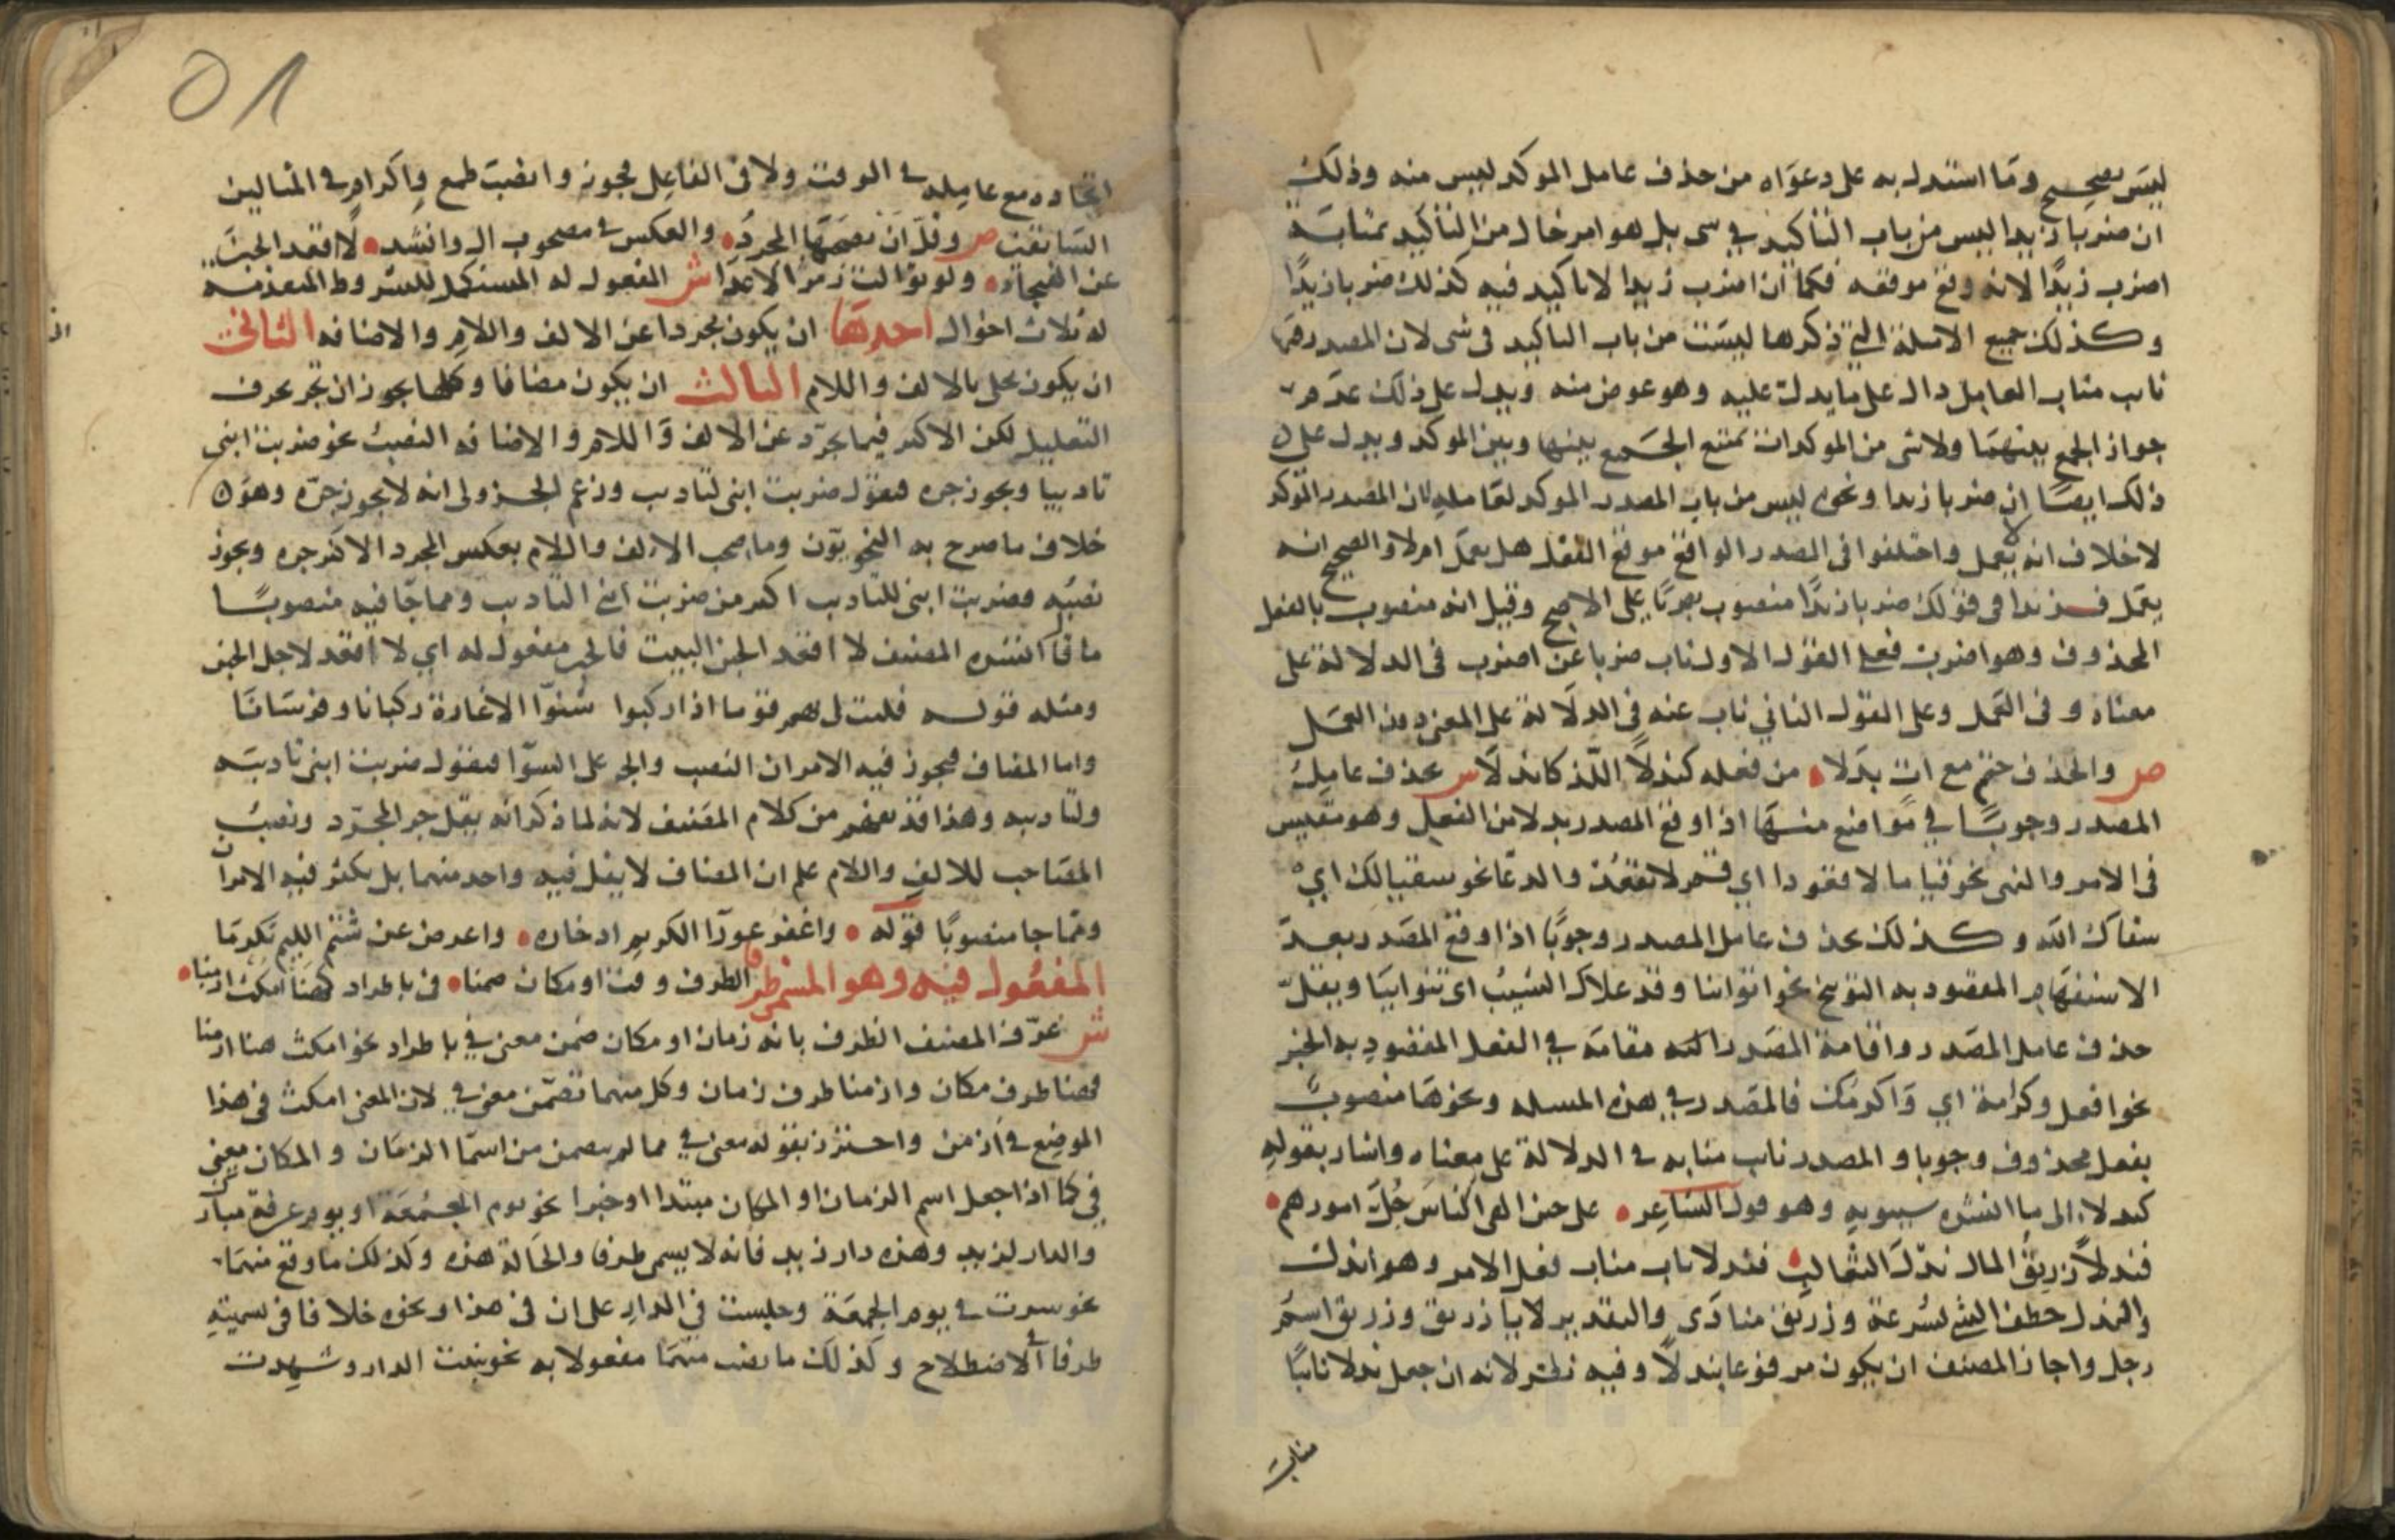 ليس بصحيح وما استدل به على دعواه من حذف عامل الموكد ليس منه وذلك
ان ضربا زيدا ليس من باب التاكيد في شي بل هو امر خال من التاكيد بمثابة
اضرب زيدًا لانه وقع موقعه فكما ان اضرب زيدا لا تاكيد فيه كذلك ضربا زيدًا
وكذلك جميع الامثلة التي ذكرها ليست من باب التاكيد في شي لان المصدر فيها
ناب مناب العامل دال على ما يدل عليه وهو عوض منه ويدل على ذلك عدم
جواز الجمع بينهما ولا شي من الموكدات يمتنع الجمع بينها وبين الموكد ويدل على
ذلك ايضًا ان ضربا زيدا ونحوه ليس من باب المصدر الموكد لعامله لان المصدر الموكد
لا خلاف انه لا يعمل واختلفوا في المصدر الواقع موقع الفعل هل يعمل ام لا والصحيح انه
يعمل فزيدا في قولك ضربا زيدًا منصوب بضربًا على الاصح وقيل انه منصوب بالفعل
المحذوف وهو اضرب فعلى القول الاول ناب ضربا عن اضرب في الدلالة على
معناه وفي العمل وعلى القول الثاني ناب عنه في الدلالة على المعنى دون العمل
ص والحذف حتم مع ات بدلا من فعله كندلًا اللذ كاندلا ش يحذف عامل
المصدر وجوبًا في مواضع منها اذا وقع المصدر بدلا من الفعل وهو مقيس
في الامر والنهى نحو قياما لا قعودا اي قم لا تقعد والدعا نحو سقيا لك اي
سقاك الله وكذلك يحذف عامل المصدر وجوبًا اذا وقع المصدر بعد
الاستفهام المقصود به التوبيخ نحو اتوانيا وقد علاك الشيب اي تتوانيا ويقل
حذف عامل المصدر واقامة المصدر مقامه في الفعل المقصود به الخبر
نحو افعل وكرامة اي واكرمك فالمصدر في هذه المسله ونحوها منصوب
بفعل محذوف وجوبا والمصدر ناب منابه في الدلالة على معناه واشار بقوله
كندلا الى ما انشده سيبويه وهو قول الشاعر على حين الهى الناس جل امورهم
فندلًا زريق المال ندل الثعالب فندلا ناب مناب فعل الامر وهو اندل
والندل خطف الشي بسرعة وزريق منادى والتقدير ندلا يا زريق وزريق اسم
رجل واجاز المصنف ان يكون مرفوعا بندلًا وفيه نظر لانه ان جعل ندلا نائبًا
مناب
٥١
اتحاده مع عامله في الوقت ولا في الفاعل فجوز وانصب طمع واكرام في المثالين
السابقين ص وقل ان يصحبها المجرد والعكس في مصحوب ال وانشدوا لا اقعد الجبن
عن الهيجاء ولو توالت زمر الاعدا ش المفعول له المستكمل للشروط المتقدمة
له ثلاث احوال احدها ان يكون مجردا عن الالف واللام والاضافه الثاني
ان يكون محلى بالالف واللام الثالث ان يكون مضافا وكلها يجوز ان تجر بحرف
التعليل لكن الاكثر فيما تجرد عن الالف واللام والاضافه النصب نحو ضربت ابني
تاديبا ويجوز جره فتقول ضربت ابنى لتاديب وزعم الجزولى انه لا يجوز جره وهو
خلاف ما صرح به النحويون وما صحب الالف واللام بعكس المجرد الاكثر جره ويجوز
نصبه فضربت ابنى للتاديب اكثر من ضربت ابني التاديب ومما جا فيه منصوبًا
ما انشده المصنف لا اقعد الجبن البيت فالجبن مفعول له اي لا اقعد لاجل الجبن
ومثله قوله فليت لي بهم قوما اذا ركبوا شنوا الاغارة ركبانا وفرسانا
واما المضاف فيجوز فيه الامران النصب والجر على السوا فتقول ضربت ابنى تاديبه
ولتاديبه وهذا قد يفهم من كلام المصنف لانه لما ذكر انه يقل جر المجرد ونصب
المصاحب للالف واللام علم ان المضاف لا يقل فيه واحد منهما بل يكثر فيه الامران
ومما جا منصوبًا قوله واغفر عورآ الكريم ادخاره واعرض عن شتم الليم تكرما
المفعول فيه وهو المسمى ظرفا الظرف وقت او مكان ضمنا في باطراد كهنا امكث ازمنا
ش عرف المصنف الظرف بانه زمان او مكان ضمن معنى في باطراد نحو امكث هنا ازمنا
فهنا ظرف مكان وازمنا ظرف زمان وكل منهما تضمن معنى في لان المعنى امكث في هذا
الموضع في ازمن واحترز بقوله معنى في مما لم يتضمن من اسما الزمان والمكان معنى
في كما اذا جعل اسم الزمان او المكان مبتدا او خبرا نحو يوم الجمعة او يوم عرفة مبارك
والدار لزيد وهذه دار زيد فانه لا يسمى ظرفا والحالة هذه وكذلك ما وقع منهما
نحو سرت في يوم الجمعة وجلست في الدار على ان في هذا ونحوه خلافا في تسميته
ظرفا في الاصطلاح وكذلك ما نصب منهما مفعولا به نحو بنيت الدار وشهدت